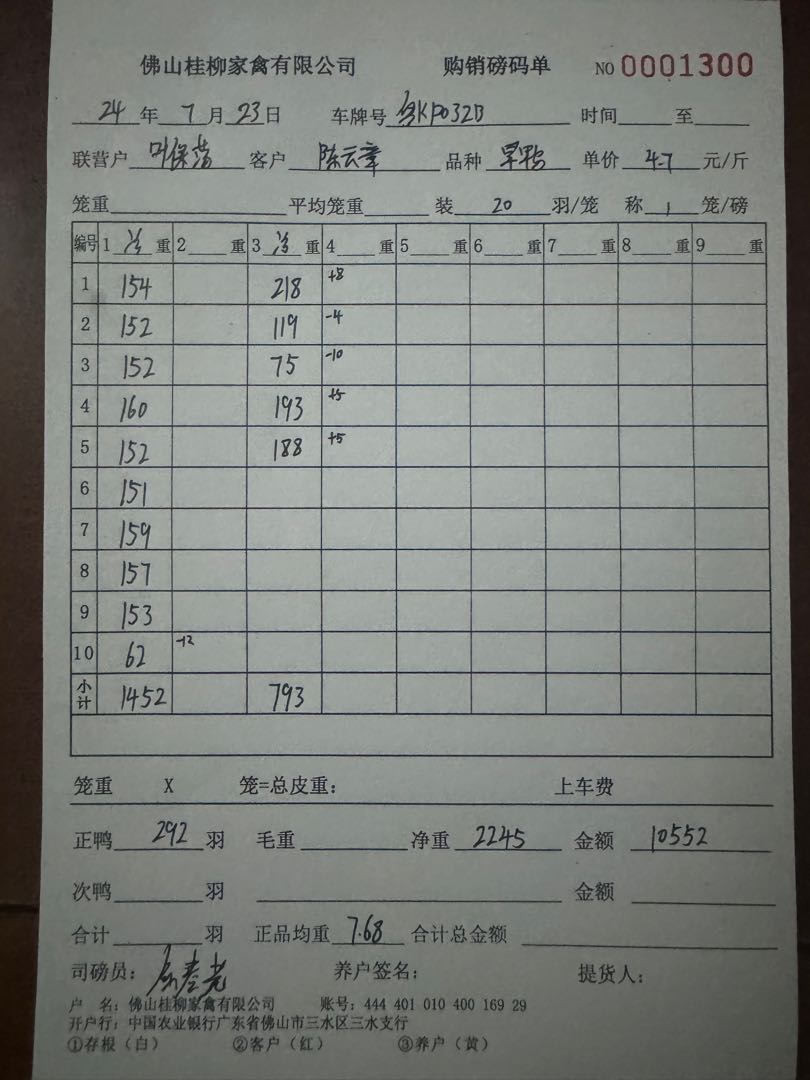 佛山桂柳家禽有限公司 购销磅码单 NO 0001300
24 年 7 月 23 日 车牌号 KP032D 时间 至
联营户 叶保 客户 陈云章 品种 旱鸭 单价 4.7 元/斤
笼重 平均笼重 装 20 羽/笼 称 1 笼/磅
编号 1 净 重 2 重 3 净 重 4 重 5 重 6 重 7 重 8 重 9 重
1 154 218 +8
2 152 119 -4
3 152 75 -10
4 160 193 +5
5 152 188 +5
6 151
7 159
8 157
9 153
10 62 -12
小计 1452 793
笼重 X 笼=总皮重: 上车费
正鸭 292 羽 毛重 净重 2245 金额 10552
次鸭 羽 金额
合计 羽 正品均重 7.68 合计总金额
司磅员: 养户签名: 提货人:
户 名: 佛山桂柳家禽有限公司 账号: 444 401 010 400 169 29
开户行: 中国农业银行广东省佛山市三水区三水支行
①存根（白） ②客户（红） ③养户（黄）